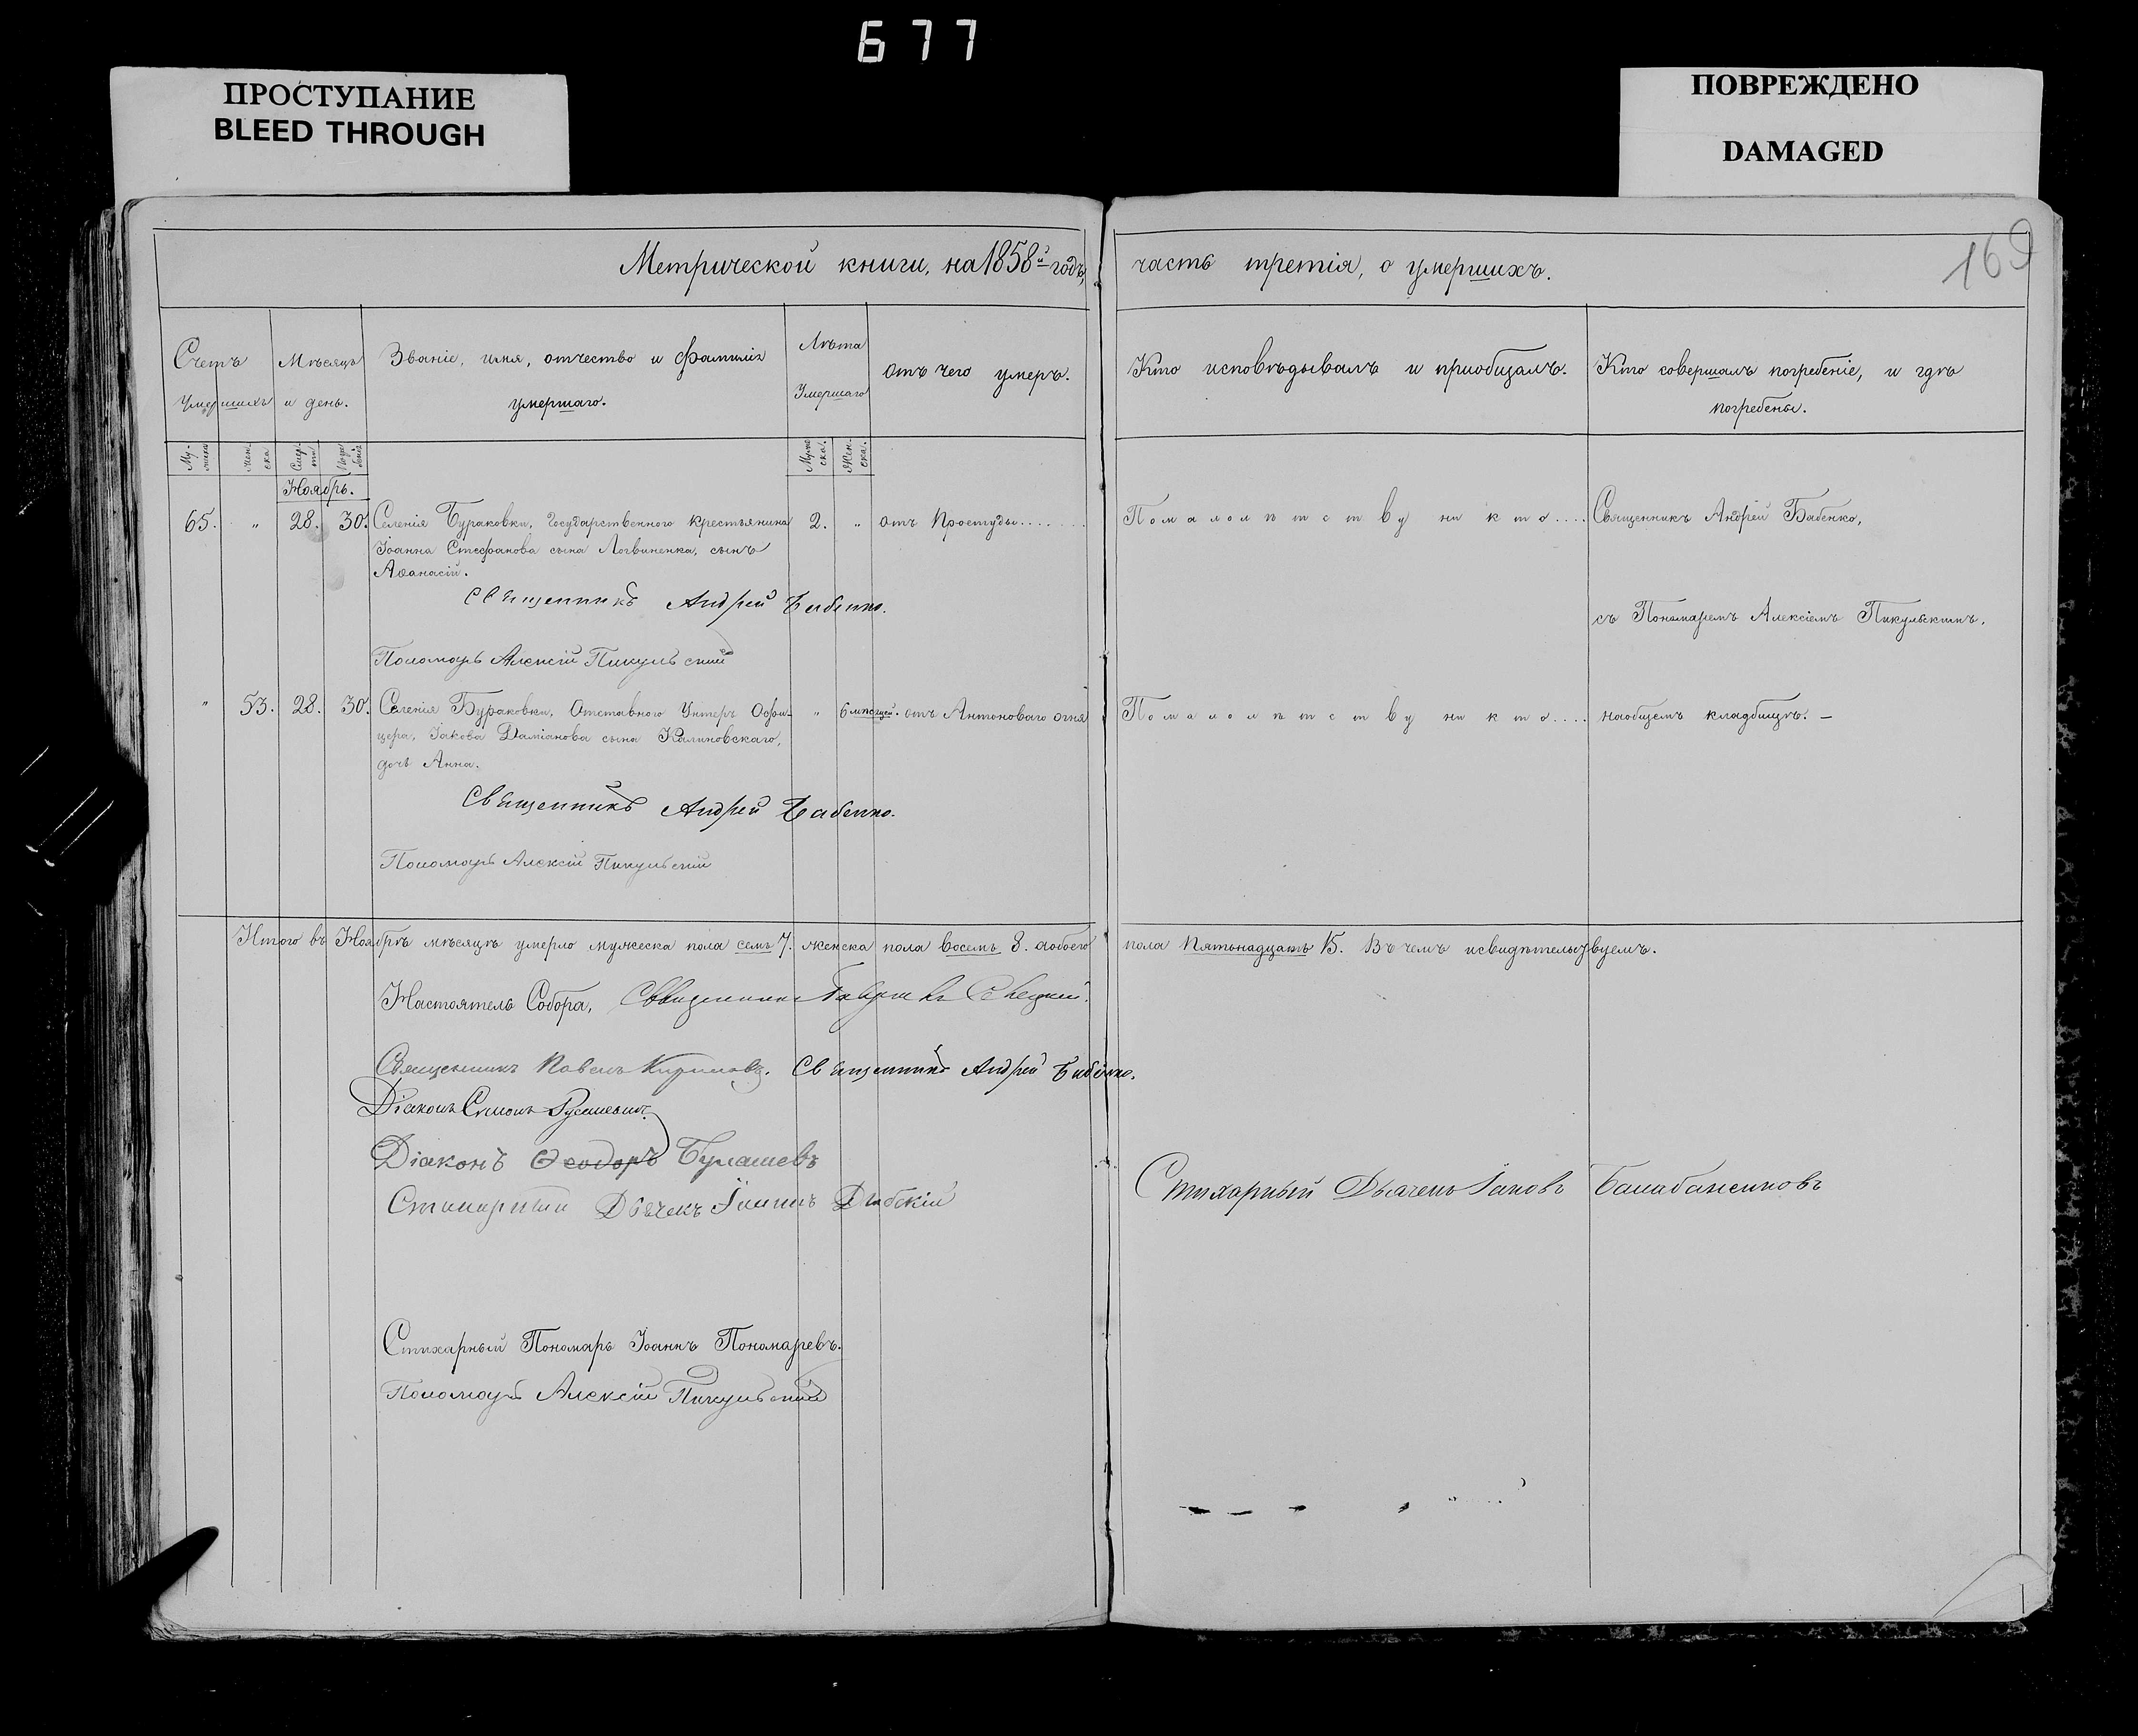 677
ПРОСТУПАНИЕ
BLEED THROUGH
ПОВРЕЖДЕНО
DAMAGED
169
Метрической книги, на 1858й годъ, часть третія, о умершихъ.
Счетъ умершихъ
Мѣсяцъ и день.
Званіе, имя, отчество и фамилія умершаго.
Лѣта Умершаго
отъ чего умеръ.
Кто исповѣдывалъ и пріобщалъ.
Кто совершалъ погребеніе, и гдѣ погребены.
Ноябрь.
65. " 28. 30. Селенія Бураковки, Государственного крестьянина 2. " отъ Простуды.... По малолѣтству ни кто.... Священникъ Андрей Бабенко,
Іоанна Стефанова сына Логвиненка, сынъ
Аѳанасій.
Священникъ Андрей Бабенко.
съ Пономаремъ Алексіемъ Пикульскимъ,
Пономарь Алексій Пикульскій
" 53. 28. 30. Селенія Бураковки, Отставного Унтеръ Офи- " 6 мѣсяцей. отъ Антоноваго огня По малолѣтству ни кто.... наобщемъ кладбищѣ. –
цера, Іакова Даміанова сына Калиновскаго,
дочь Анна.
Священникъ Андрей Бабенко.
Пономарь Алексій Пикульскій
Итого въ Ноябрѣ мѣсяцѣ умерло мужеска пола семь 7. женска пола восемь 8. аобоего пола Пятьнадцать 15. Въ чемъ исвидѣтельствуемъ.
Настоятель Собора, Священникъ
Священникъ Павелъ Священникъ Андрей Бабенко.
Діаконъ Симонъ
Діаконъ Ѳеодоръ
Стихарный Дьячекъ Іоаннъ
Стихарный Дьячекъ Іаковъ
Стихарный Пономарь Іоаннъ Пономаревъ.
Пономарь Алексій Пикульскій